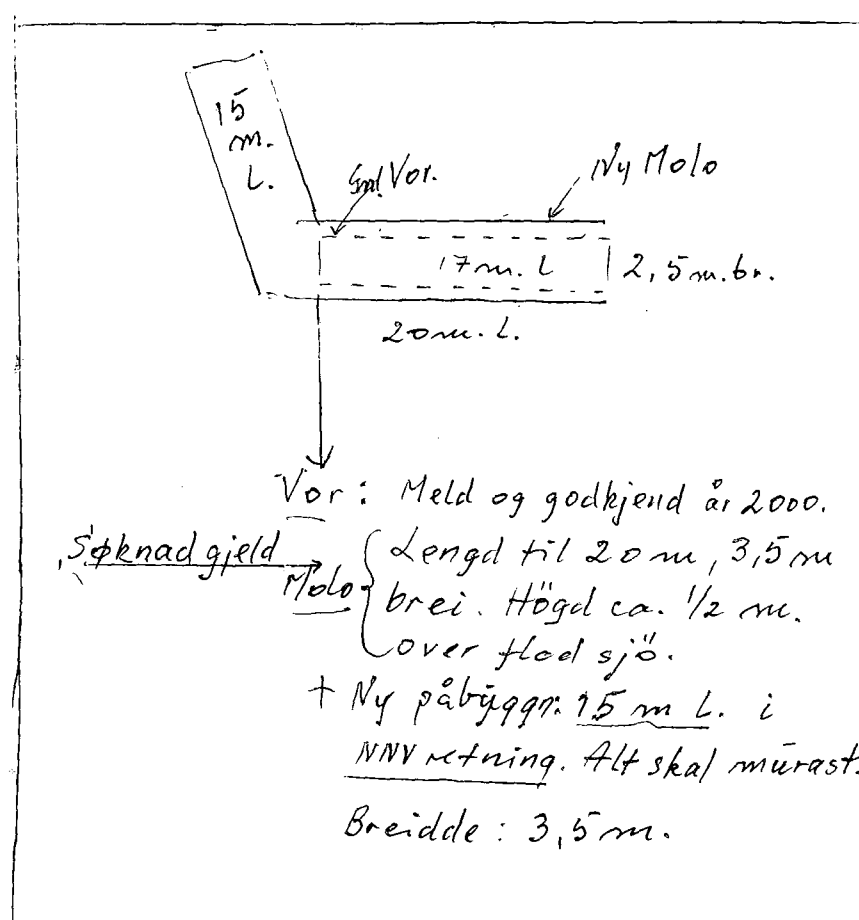 15
m.
L.
Gml Vor.
Ny Molo
17 m. L
2,5 m. br.
20 m. L.
Vor : Meld og godkjend år 2000.
Søknad gjeld
Molo
Lengd til 20 m, 3,5 m
brei. Högd ca. 1/2 m.
over flod sjö.
+ Ny påbyggn. 15 m L. i
NNV retning. Alt skal murast.
Breidde : 3,5 m.